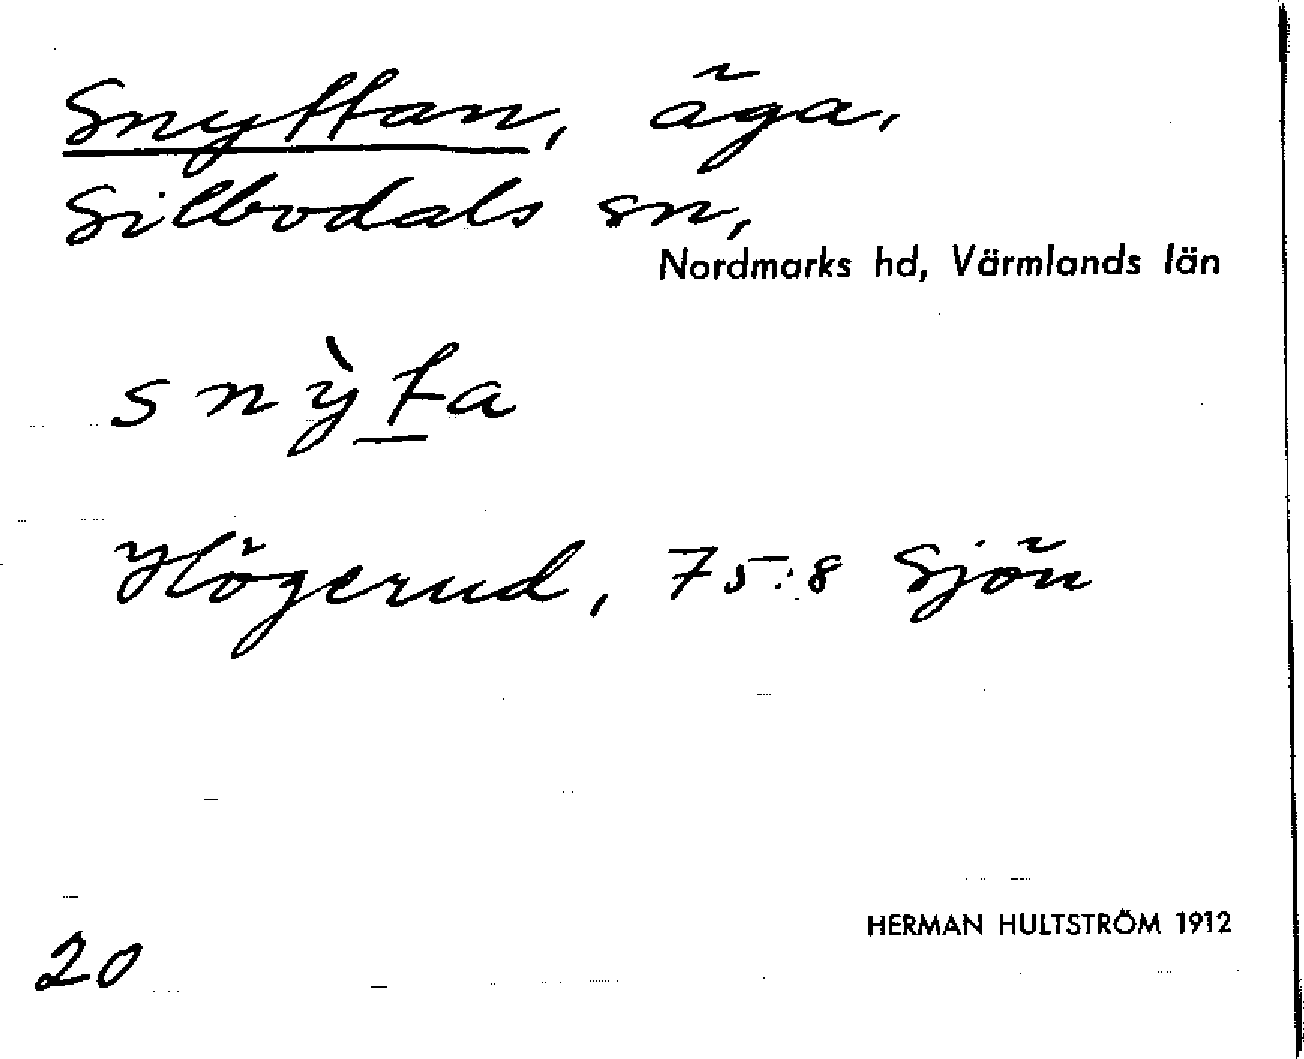 Snyttan, äga,
Silbodals sn,
Nordmarks hd, Värmlands län
snỳta
Högerud, 75:8 Sjön
HERMAN HULTSTRÖM 1912
20